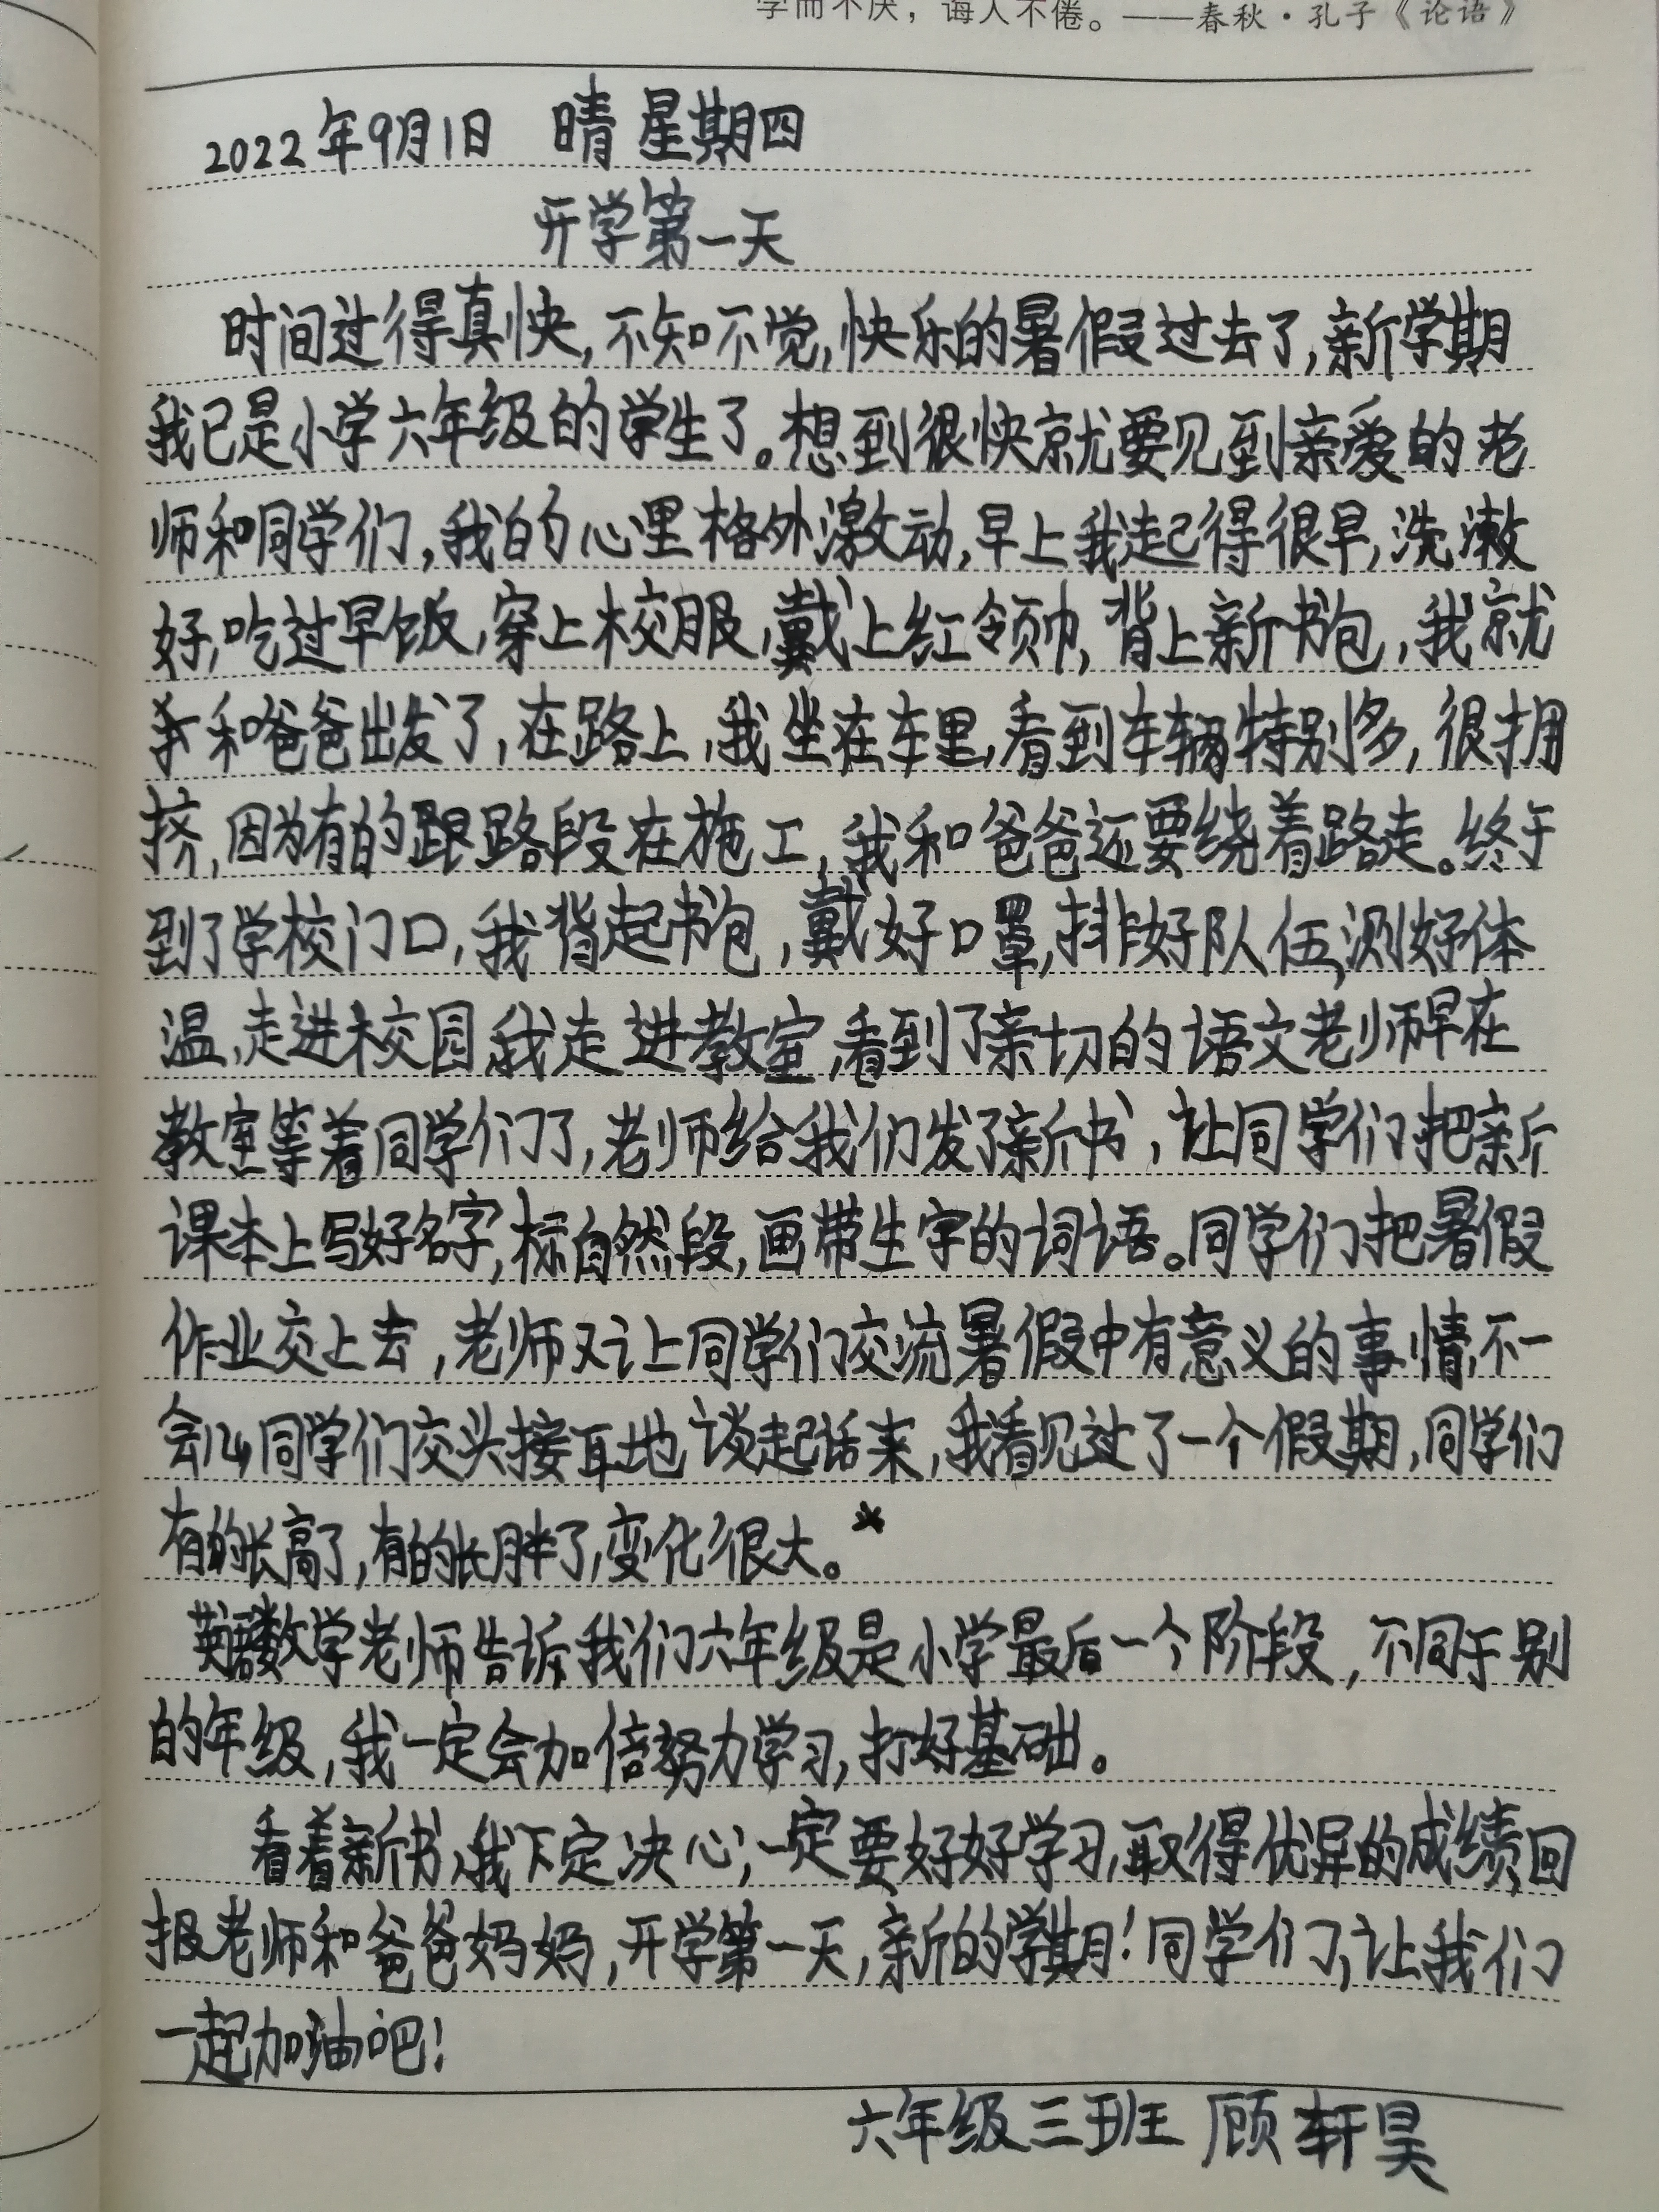 学而不厌，诲人不倦。——春秋·孔子《论语》
2022年9月1日 晴 星期四
开学第一天
时间过得真快,不知不觉,快乐的暑假过去了,新学期
我已是小学六年级的学生了。想到很快就要见到亲爱的老
师和同学们,我的心里格外激动,早上我起得很早,洗漱
好,吃过早饭,穿上校服,戴上红领巾,背上新书包,我就
和爸爸出发了,在路上,我坐在车里,看到车辆特别多,很拥
挤,因为有的路段在施工,我和爸爸还要绕着路走。终于
到了学校门口,我背起书包,戴好口罩,排好队伍,测好体
温,走进校园,我走进教室,看到了亲切的语文老师早在
教室等着同学们了,老师给我们发了新书,让同学们把新
课本上写好名字,标自然段,画带生字的词语。同学们把暑假
作业交上去,老师又让同学们交流暑假中有意义的事情,不一
会儿,同学们交头接耳地谈起话来,我看见过了一个假期,同学们
有的长高了,有的长胖了,变化很大。
数学老师告诉我们六年级是小学最后一个阶段,不同于别
的年级,我一定会加倍努力学习,打好基础。
看着新书,我下定决心,一定要好好学习,取得优异的成绩,回
报老师和爸爸妈妈,开学第一天,新的学期!同学们,让我们
一起加油吧!
六年级三班 顾轩昊